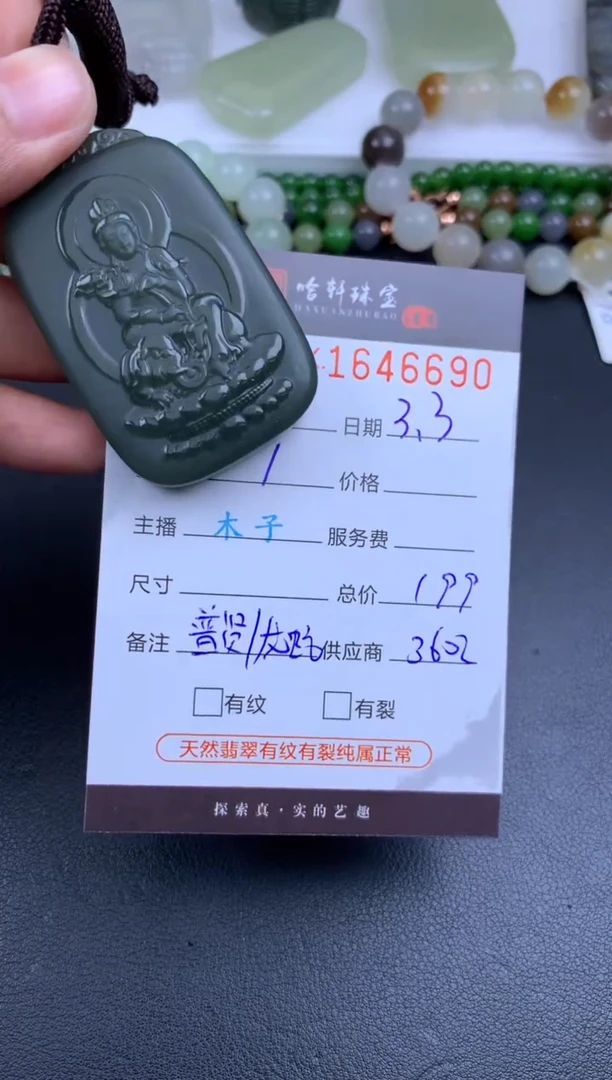 哈轩珠宝
HAXUANZHUBAO
1646690
日期 3.3
1 价格
主播 木子 服务费
尺寸 总价 199
备注 普贤/ 供应商 3602
有纹 有裂
天然翡翠有纹有裂纯属正常
探索真·实的艺趣